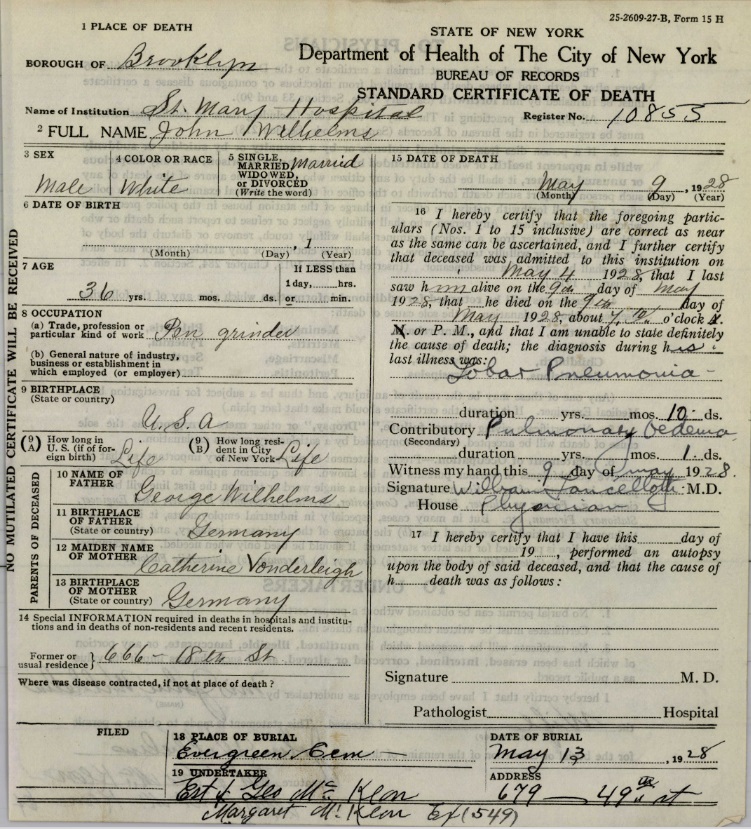 25-2609-27-B, Form 15 H
1 PLACE OF DEATH
STATE OF NEW YORK
BOROUGH OF Brooklyn
Department of Health of The City of New York
BUREAU OF RECORDS
STANDARD CERTIFICATE OF DEATH
Name of Institution St. Mary Hospital
Register No. 10855
2 FULL NAME John Wilhelms
3 SEX
Male
4 COLOR OR RACE
White
5 SINGLE, MARRIED, WIDOWED, or DIVORCED
(Write the word)
Married
6 DATE OF BIRTH
, 1
(Month) (Day) (Year)
7 AGE
36 yrs. mos. ds.
If LESS than
1 day, hrs.
or min.
8 OCCUPATION
(a) Trade, profession or
particular kind of work Pen grinder
(b) General nature of industry,
business or establishment in
which employed (or employer)
9 BIRTHPLACE
(State or country)
U.S.A
(9 A) How long in
U. S. (if of for-
eign birth) Life
(9 B) How long resi-
dent in City
of New York Life
NO MUTILATED CERTIFICATE WILL BE RECEIVED
PARENTS OF DECEASED
10 NAME OF
FATHER
George Wilhelms
11 BIRTHPLACE
OF FATHER
(State or country)
Germany
12 MAIDEN NAME
OF MOTHER
Catherine Vonderleigh
13 BIRTHPLACE
OF MOTHER
(State or country)
Germany
14 Special INFORMATION required in deaths in hospitals and institu-
tions and in deaths of non-residents and recent residents.
Former or
usual residence } 666 - 18th St
Where was disease contracted, if not at place of death ?
15 DATE OF DEATH
May 9, 1928
(Month) (Day) (Year)
16 I hereby certify that the foregoing partic-
ulars (Nos. 1 to 15 inclusive) are correct as near
as the same can be ascertained, and I further certify
that deceased was admitted to this institution on
May 4 1928, that I last
saw him alive on the 9th day of May
1928, that he died on the 9th day of
May 1928, about 7 o'clock A.
M. or P. M., and that I am unable to state definitely
the cause of death; the diagnosis during his
last illness was:
Lobar Pneumonia
duration yrs. mos. 10 ds.
Contributory Pulmonary Oedema
(Secondary)
duration yrs. mos. 1 ds.
Witness my hand this 9 day of May 1928.
Signature William Lancellotti M.D.
House Physician
17 I hereby certify that I have this day of
19 , performed an autopsy
upon the body of said deceased, and that the cause of
h death was as follows:
Signature M. D.
Pathologist Hospital
FILED
18 PLACE OF BURIAL
Evergreen Cem
DATE OF BURIAL
May 13, 1928
19 UNDERTAKER
Est of Geo McKeon
Margaret McKeon Ex (549)
ADDRESS
679 49th st